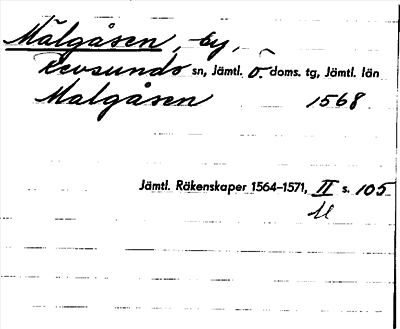 Mälgåsen, by,
Revsunds sn, Jämtl. Ö. doms. tg, Jämtl. län
Malgåsen 1568
Jämtl. Räkenskaper 1564–1571, II s. 105